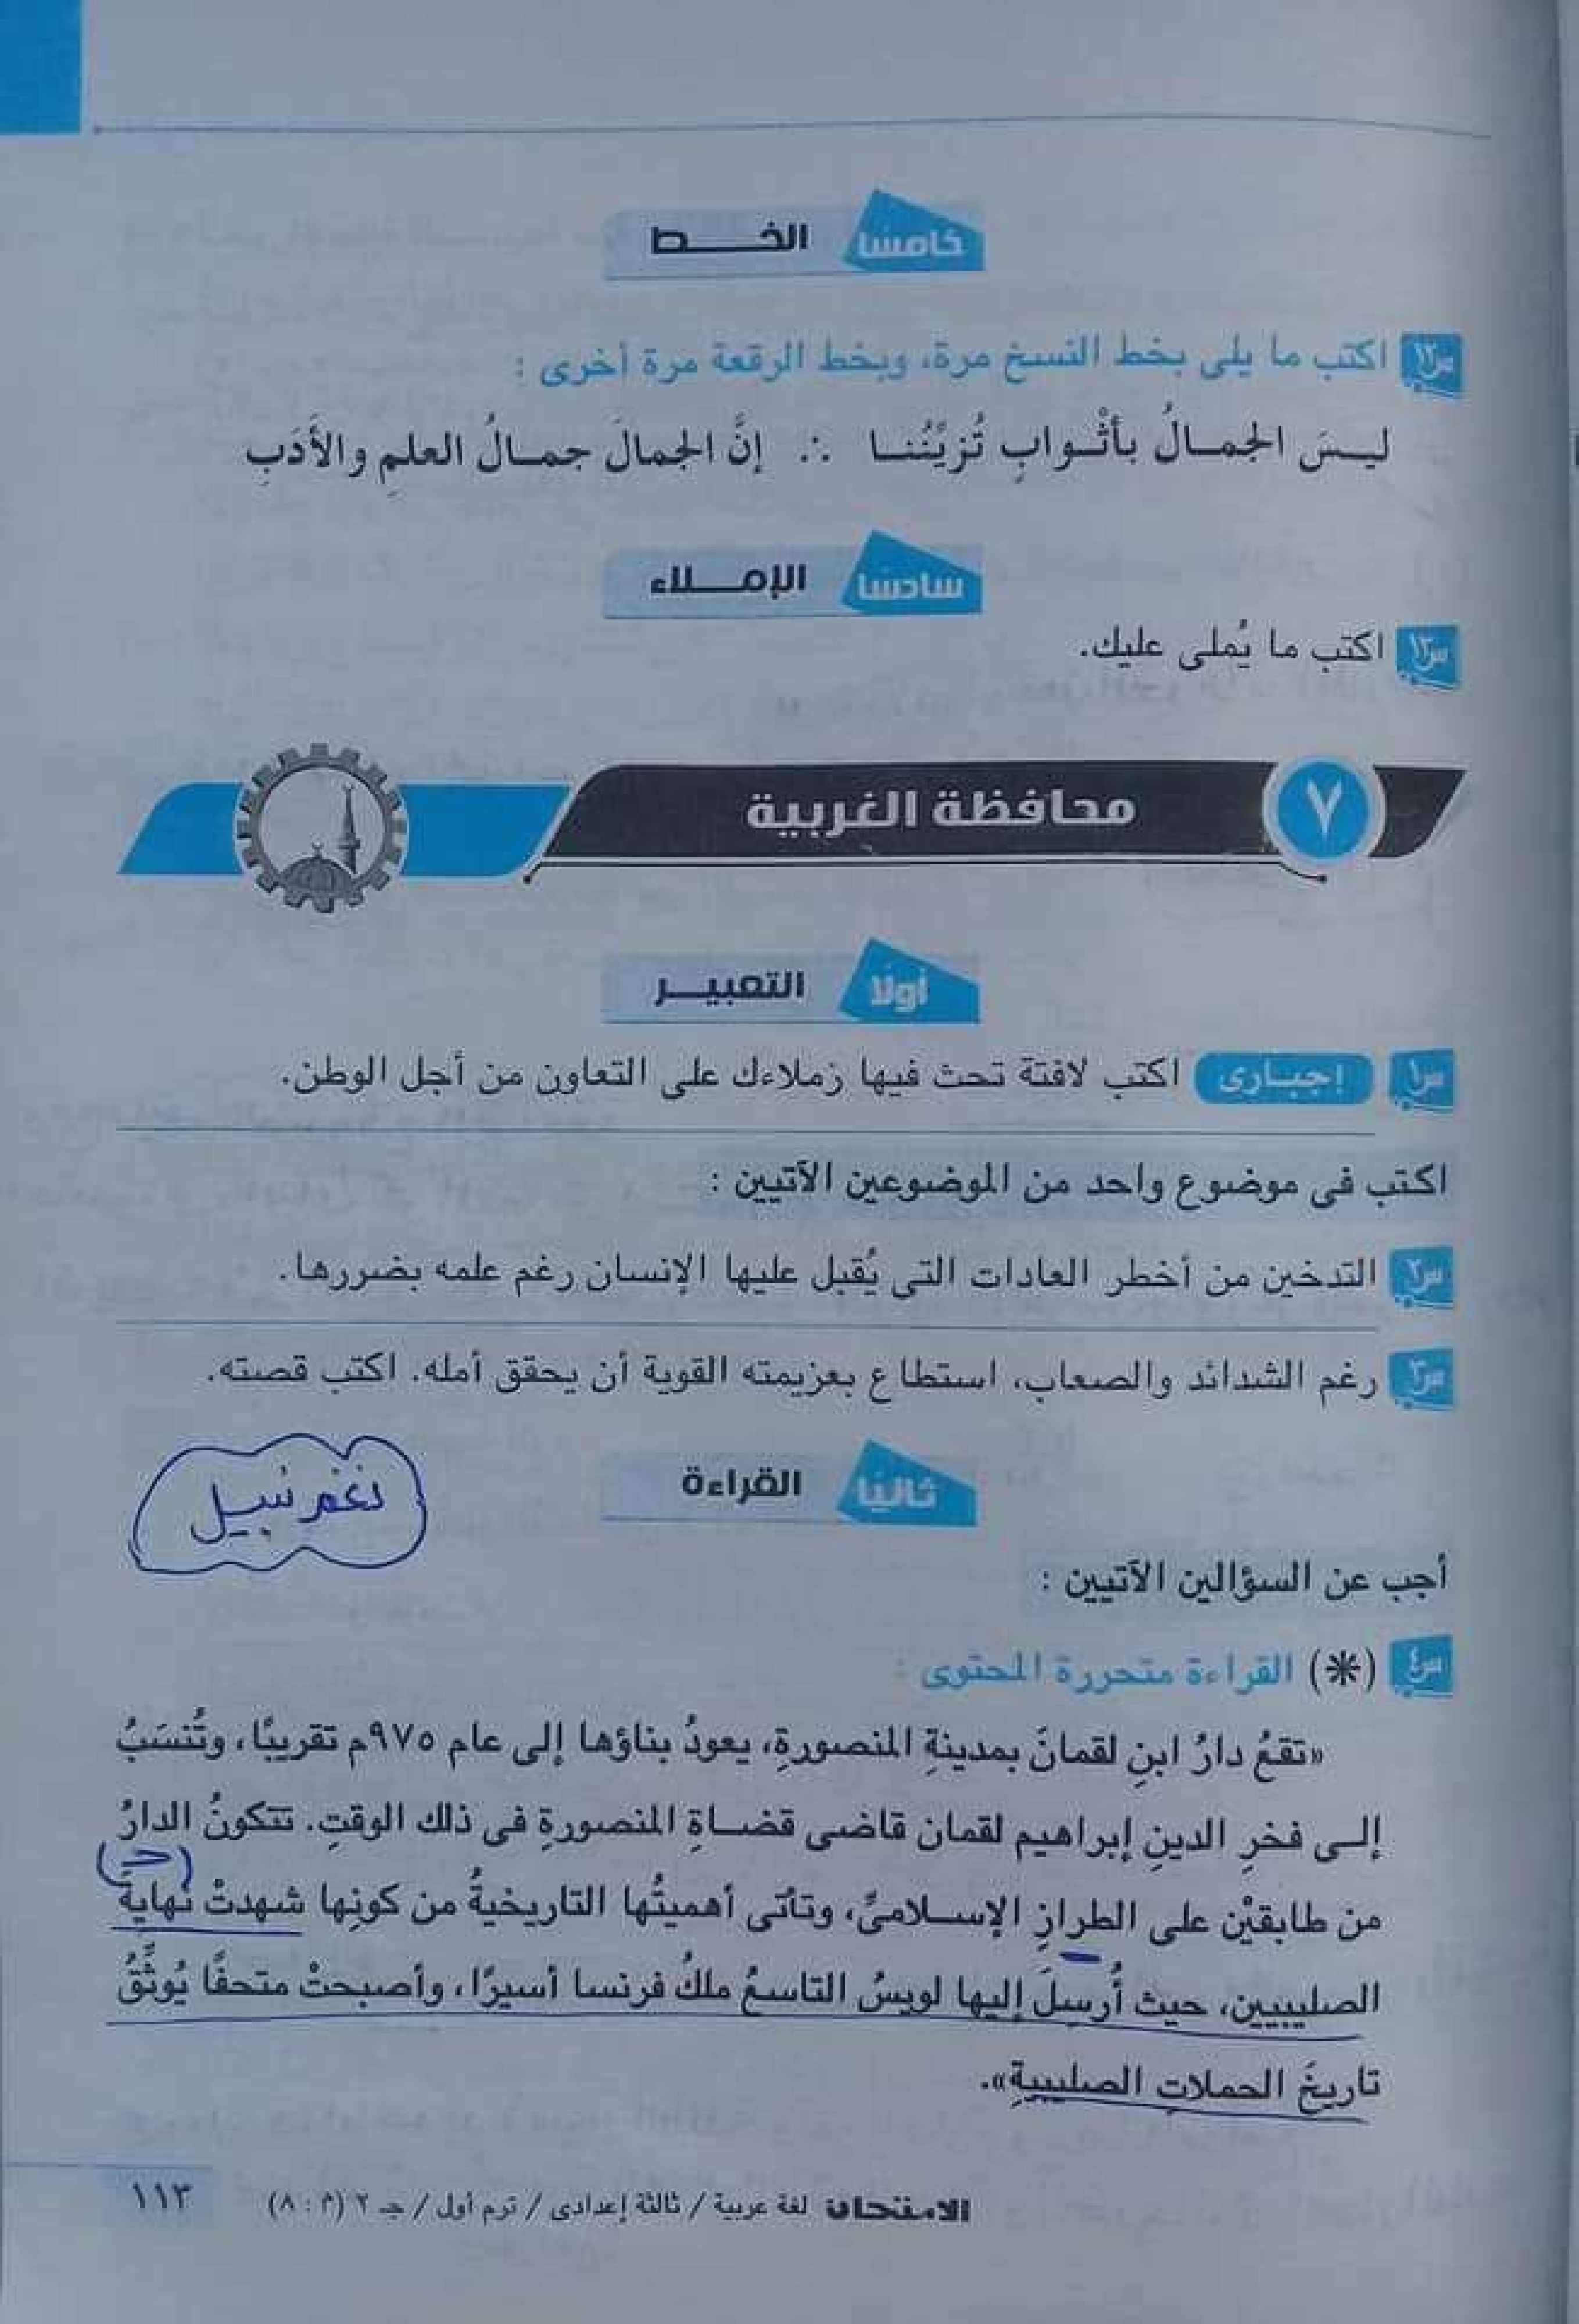 خامسًا الخـــط
س١٢ اكتب ما يلى بخط النسخ مرة، وبخط الرقعة مرة أخرى :
ليـسَ الجمـالُ بأثْـوابٍ تُزيِّنُنـا ∴ إنَّ الجمالَ جمـالُ العلمِ والأَدَبِ
سادسًا الإمـــلاء
س١٣ اكتب ما يُملى عليك.
٧ محافظة الغربية
أولًا التعبيـــر
س١ إجبـارى اكتب لافتة تحث فيها زملاءك على التعاون من أجل الوطن.
اكتب فى موضوع واحد من الموضوعين الآتيين :
س٢ التدخين من أخطر العادات التى يُقبل عليها الإنسان رغم علمه بضررها.
س٣ رغم الشدائد والصعاب، استطاع بعزيمته القوية أن يحقق أمله. اكتب قصته.
ثانيًا القراءة
نغم نبيل
أجب عن السؤالين الآتيين :
س٤ (*) القراءة متحررة المحتوى :
«تقعُ دارُ ابنِ لقمانَ بمدينةِ المنصورةِ، يعودُ بناؤها إلى عام ٩٧٥م تقريبًا، وتُنسَبُ
إلـى فخرِ الدينِ إبراهيم لقمان قاضى قضـاةِ المنصورةِ فى ذلك الوقتِ. تتكونُ الدارُ
(جـ)
من طابقيْن على الطرازِ الإسـلامىِّ، وتأتى أهميتُها التاريخيةُ من كونِها شهدتْ نهايةَ
الصليبيين، حيث أُرسِلَ إليها لويسُ التاسعُ ملكُ فرنسا أسيرًا، وأصبحتْ متحفًا يُوثِّقُ
تاريخَ الحملاتِ الصليبيةِ».
الامتحان لغة عربية / ثالثة إعدادى / ترم أول / جـ ٢ (م : ٨) ١١٣